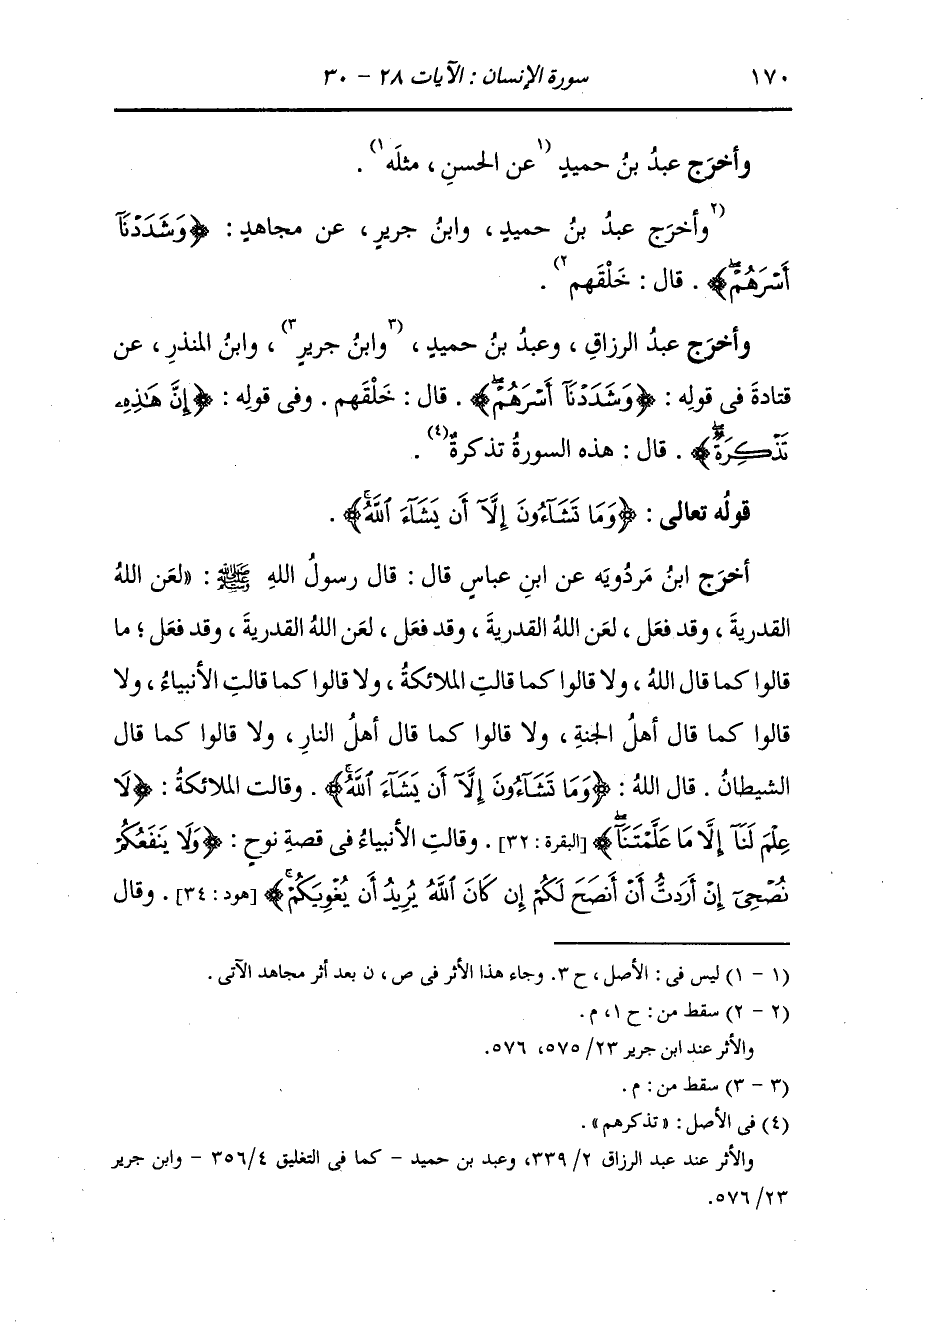 ١٧٠ سورة الإنسان : الآيات ٢٨ - ٣٠
وأخرَج عبدُ بنُ حميدٍ (١عن الحسنِ ، مثلَه١) .
(٢وأخرَج عبدُ بنُ حميدٍ ، وابنُ جريرٍ ، عن مجاهدٍ : ﴿وَشَدَدْنَآ
أَسْرَهُمْۖ﴾ . قال : خَلْقَهم٢) .
وأخرَج عبدُ الرزاقِ ، وعبدُ بنُ حميدٍ ، (٣وابنُ جريرٍ٣) ، وابنُ المنذرِ ، عن
قتادةَ فى قولِه : ﴿وَشَدَدْنَآ أَسْرَهُمْۖ﴾ . قال : خَلْقَهم . وفى قولِه : ﴿إِنَّ هَٰذِهِۦ
تَذْكِرَةٌۖ﴾ . قال : هذه السورةُ تذكرةٌ(٤) .
قولُه تعالى : ﴿وَمَا تَشَآءُونَ إِلَّآ أَن يَشَآءَ ٱللَّهُۚ﴾ .
أخرَج ابنُ مَردُويَه عن ابنِ عباسٍ قال : قال رسولُ اللهِ ﷺ : «لعَن اللهُ
القدريةَ ، وقد فعَل ، لعَن اللهُ القدريةَ ، وقد فعَل ، لعَن اللهُ القدريةَ ، وقد فعَل ؛ ما
قالوا كما قال اللهُ ، ولا قالوا كما قالتِ الملائكةُ ، ولا قالوا كما قالتِ الأنبياءُ ، ولا
قالوا كما قال أهلُ الجنةِ ، ولا قالوا كما قال أهلُ النارِ ، ولا قالوا كما قال
الشيطانُ . قال اللهُ : ﴿وَمَا تَشَآءُونَ إِلَّآ أَن يَشَآءَ ٱللَّهُۚ﴾ . وقالت الملائكةُ : ﴿لَا
عِلْمَ لَنَآ إِلَّا مَا عَلَّمْتَنَآۖ﴾ [البقرة : ٣٢] . وقالتِ الأنبياءُ فى قصةِ نوحٍ : ﴿وَلَا يَنفَعُكُمْ
نُصْحِىٓ إِنْ أَرَدتُّ أَنْ أَنصَحَ لَكُمْ إِن كَانَ ٱللَّهُ يُرِيدُ أَن يُغْوِيَكُمْۚ﴾ [هود : ٣٤] . وقال
(١ - ١) ليس فى : الأصل ، ح ٣. وجاء هذا الأثر فى ص ، ن بعد أثر مجاهد الآتى .
(٢ - ٢) سقط من : ح ١، م.
والأثر عند ابن جرير ٢٣/ ٥٧٥، ٥٧٦.
(٣ - ٣) سقط من : م.
(٤) فى الأصل : «تذكرهم» .
والأثر عند عبد الرزاق ٢/ ٣٣٩، وعبد بن حميد - كما فى التغليق ٤/ ٣٥٦ - وابن جرير
٢٣/ ٥٧٦.